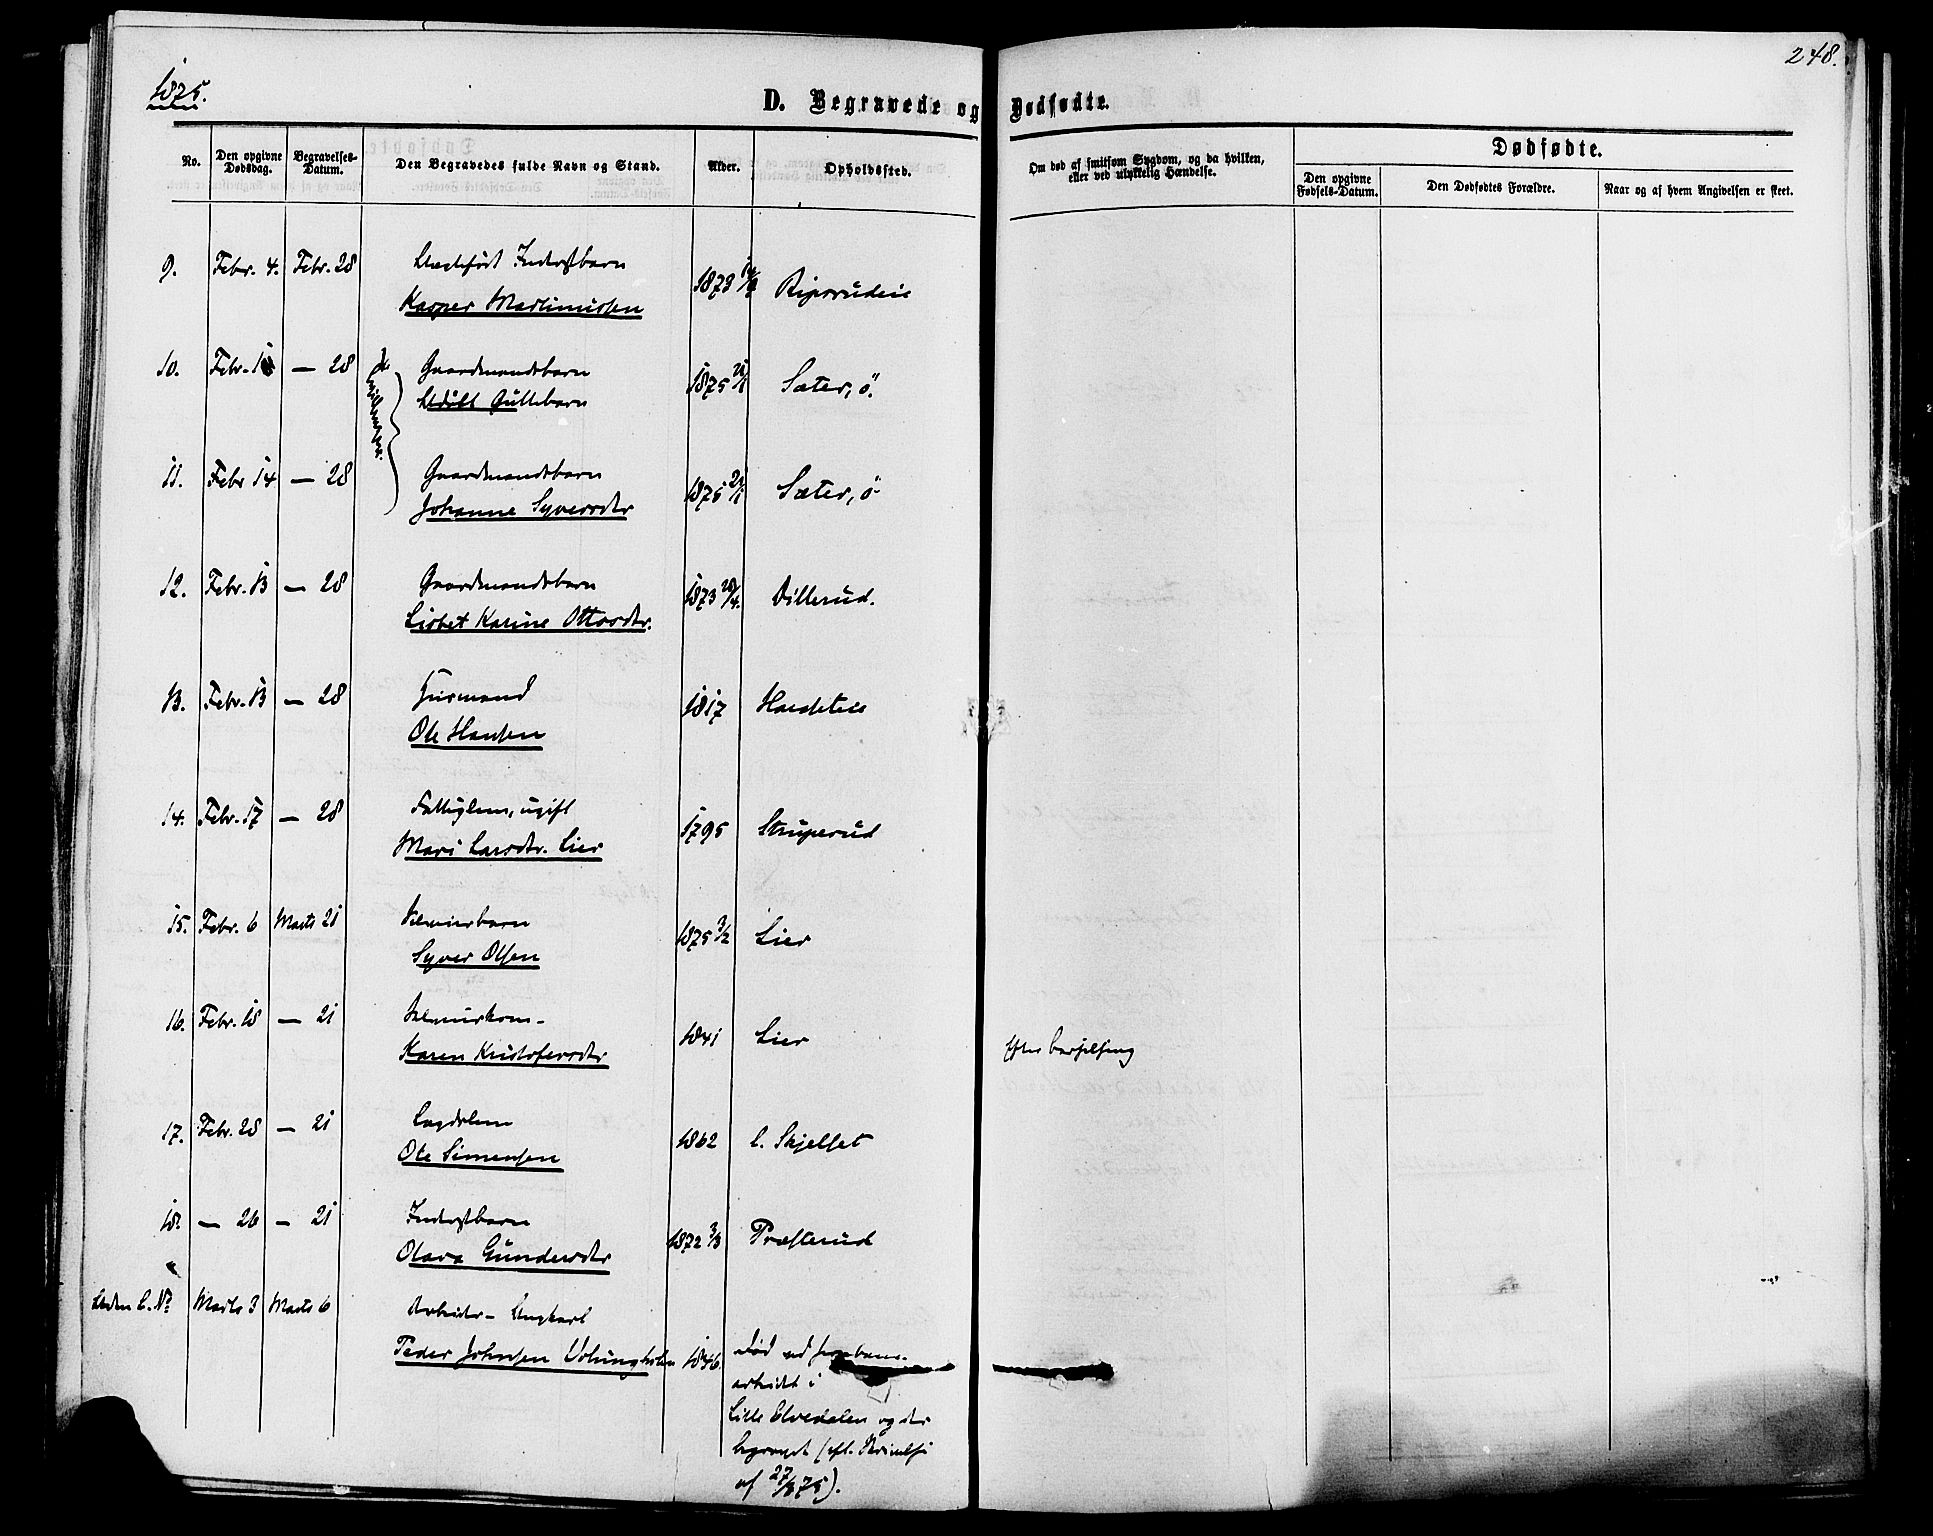 1875.
248.
D. Begravede og Dødfødte.
No.
Den opgivne Dødsdag.
Begravelses-Datum.
Den Begravedes fulde Navn og Stand.
Alder.
Opholdssted.
Om død af smitsom Sygdom, og da hvilken, eller ved ulykkelig Hændelse.
Dødfødte.
Den opgivne Fødsels-Datum.
Den Dødfødtes Forældre.
Naar og af hvem Angivelsen er skeet.
9. Febr. 4. Febr. 28 Inderstbarn
Kasper Martinussen 1873 Ripsrudeie
10. Febr. — 28 Gaardmandsbarn
Udøbt Guttebarn 1875 Sæter, ø.
11. Febr 14 — 28 Gaardmandsbarn
Johanne Syversdtr 1875 21/1 Sæter, ø.
12. Febr. 13 — 28 Gaardmandsbarn
Lisbet Karine Ottersdtr. 1873 28/4. Dillerud.
13. Febr. 13 — 28 Husmand
Ole Hansen 1817
14. Febr. 17 — 28 Fattiglem, ugift
Mari Larsdtr. Lier 1795 Struperud
15. Febr. 6 Marts 21
Syver Olsen 1875 3/2 Lier
16. Febr. 18 — 21
Karen Kristofersdtr 1841 Lier
efter barselseng
17. Febr. 28 — 21 Lægdslem
Ole Simensen 1862 l. Skjellet
18. — 26 — 21 Inderstbarn
Olava Gundersdtr 1872 3/3 Præsterud
Uden L. No Marts 3 Marts 6 Arbeider- Ungkarl
Peder Johnsen 1846. død ved
arbeidet i
Lille Elvedalen og der
begravet (efl. Skrivelse
af 27/3 75).